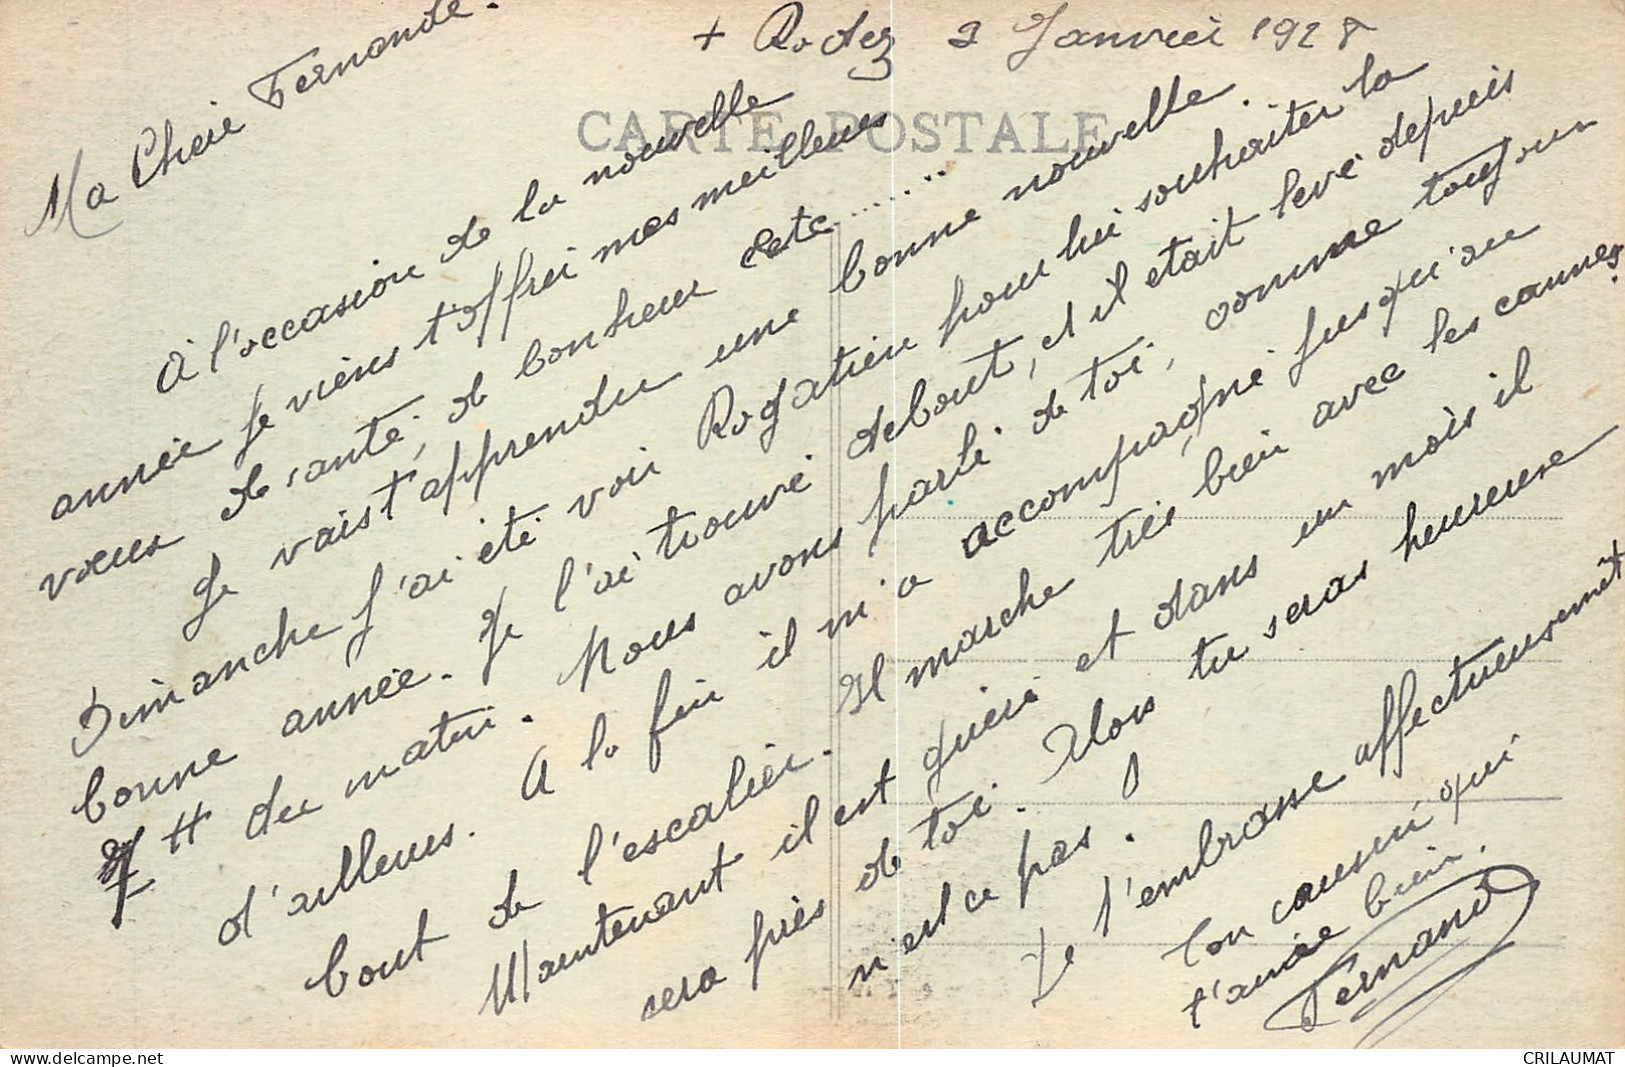 + Rodez 3 Janvier 1928
CARTE POSTALE
Ma Cheie Fernande.
A l'occasion de la nouvelle
année je viens t'offrir mes meilleurs
vœux de santé, de bonheur ect........
Je vais t'apprendre une bonne nouvelle.
Dimanche j'ai été voir Rogatien pour lui souhaiter la
bonne année. Je l'ai trouvé debout, et il etait levé depuis
7 H du matin. Nous avons parlé de toi, comme toujours
d'ailleurs. A la fin il m'a accompagné jusqu'au
bout de l'escalier. Il marche très bien avec les cannes.
Maintenant il est guéri et dans un mois il
sera près de toi. Alors tu seras heureuse
n'est ce pas !
Je t'embrasse affectueusement
Ton cousin qui
t'aime bien.
Fernand
www.delcampe.net
CRILAUMAT